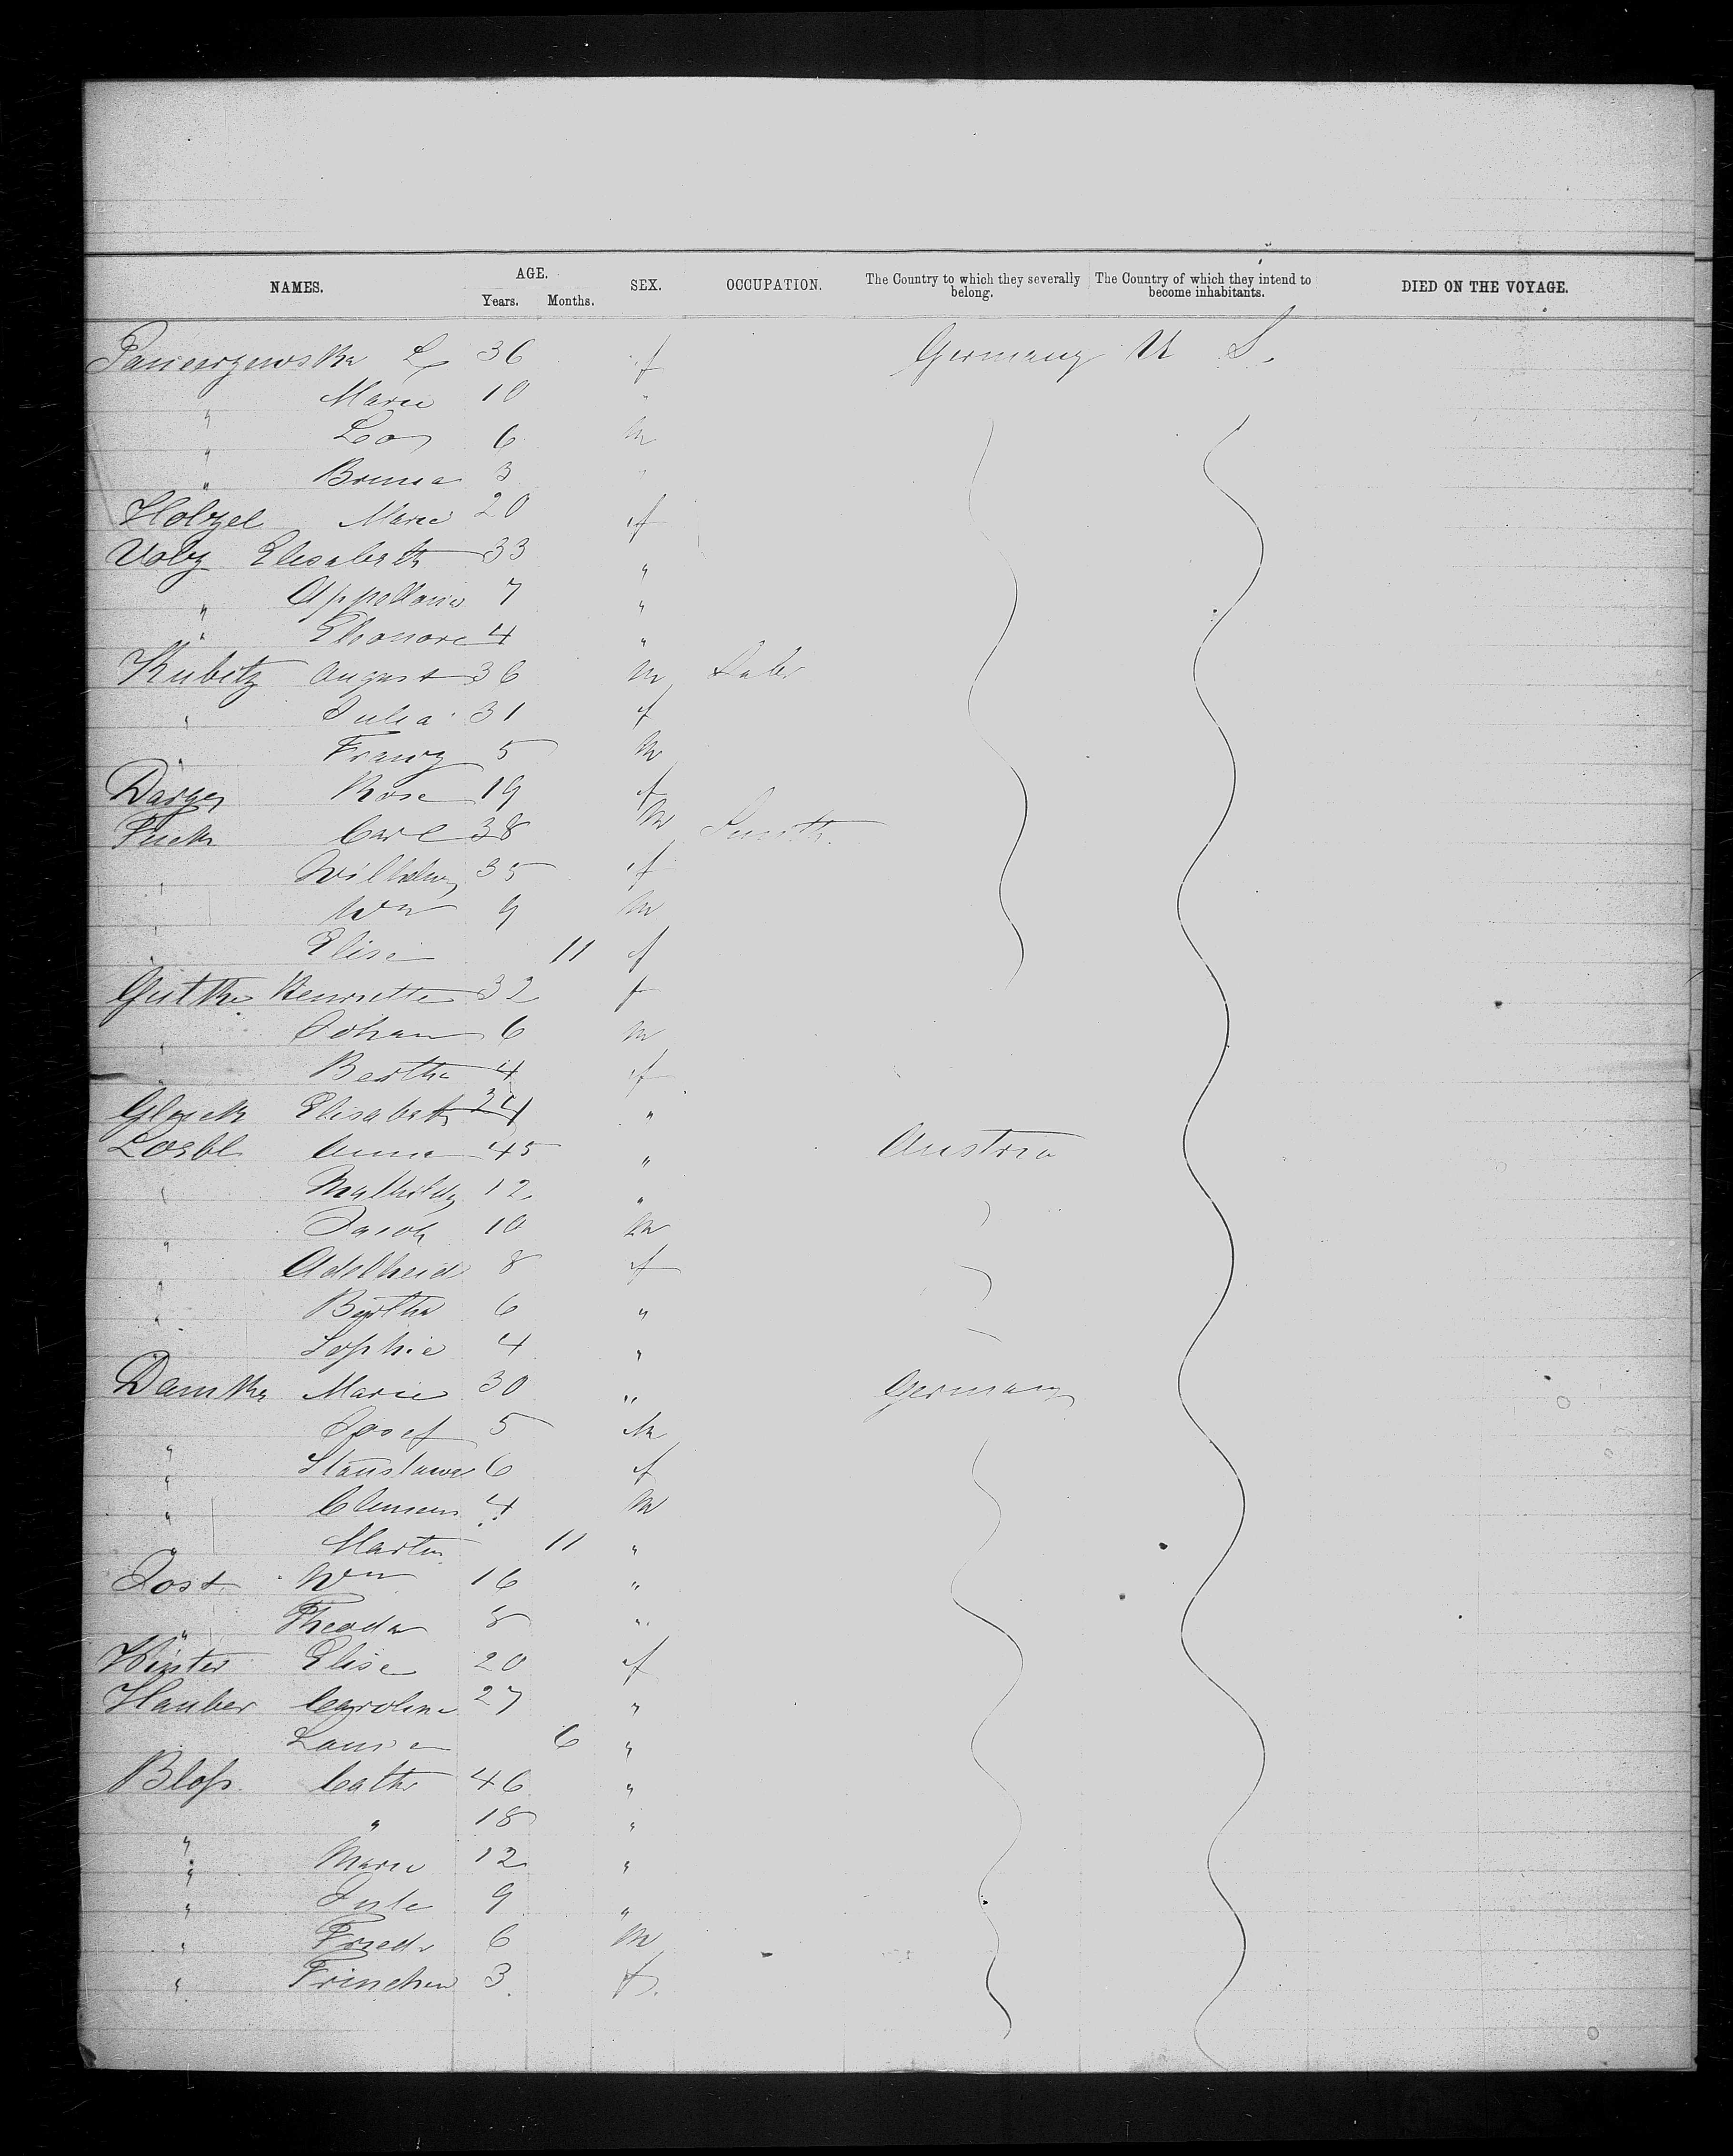 NAMES. AGE. Years. Months. SEX. OCCUPATION. The Country to which they severally belong. The Country of which they intend to become inhabitants. DIED ON THE VOYAGE.
L 36 f Germany U S.
" Marie 10 "
" Leo 6 m
" 3 "
Holzel Marie 20 f
Volz Elisabeth 33 "
" Appollonia 7 "
" Eleonore 4 "
Kubitz August 36 m Labr
" Julia 31 f
" Franz 5 m
Darges Rose 19 f
Carl 38 m Smith
" 35 f
" Wm 9 m
" Elise 11 f
Guthke Henriette 32 f
" Johann 6 m
" Bertha 4 f
Glock Elisabeth 24 "
Loebl Anna 45 " Austria
" Mathilde 12 "
" Jacob 10 m
" Adelheid 8 f
" Bertha 6 "
" Sophie 4 "
Damke Marie 30 " Germany
" Josef 5 m
" Stanslawa 6 f
" Clemens 4 m
" Martin 11 "
Jost Wm 16 "
" Theodor 8 "
Winter Elise 20 f
Hauber Caroline 27 "
Louise 6 "
Bloss Cathe 46 "
" " 18 "
" Marie 12 "
" Jule 9 "
" Friedr 6 m
" Trinchen 3 f.